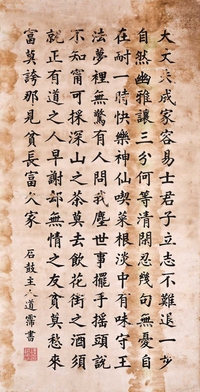 大丈夫成家容易士君子立志不難退一步
自然幽雅讓三分何等清閒忍幾句無憂自
在耐一時快樂神仙喫菜根淡中有味守王
法夢裡無驚有人問我塵世事擺手搖頭說
不知甯可採深山之茶莫去飲花街之酒須
就正有道之人早謝卻無情之友貧莫愁來
富莫誇那見貧長富久家
石鼓主人道霈書